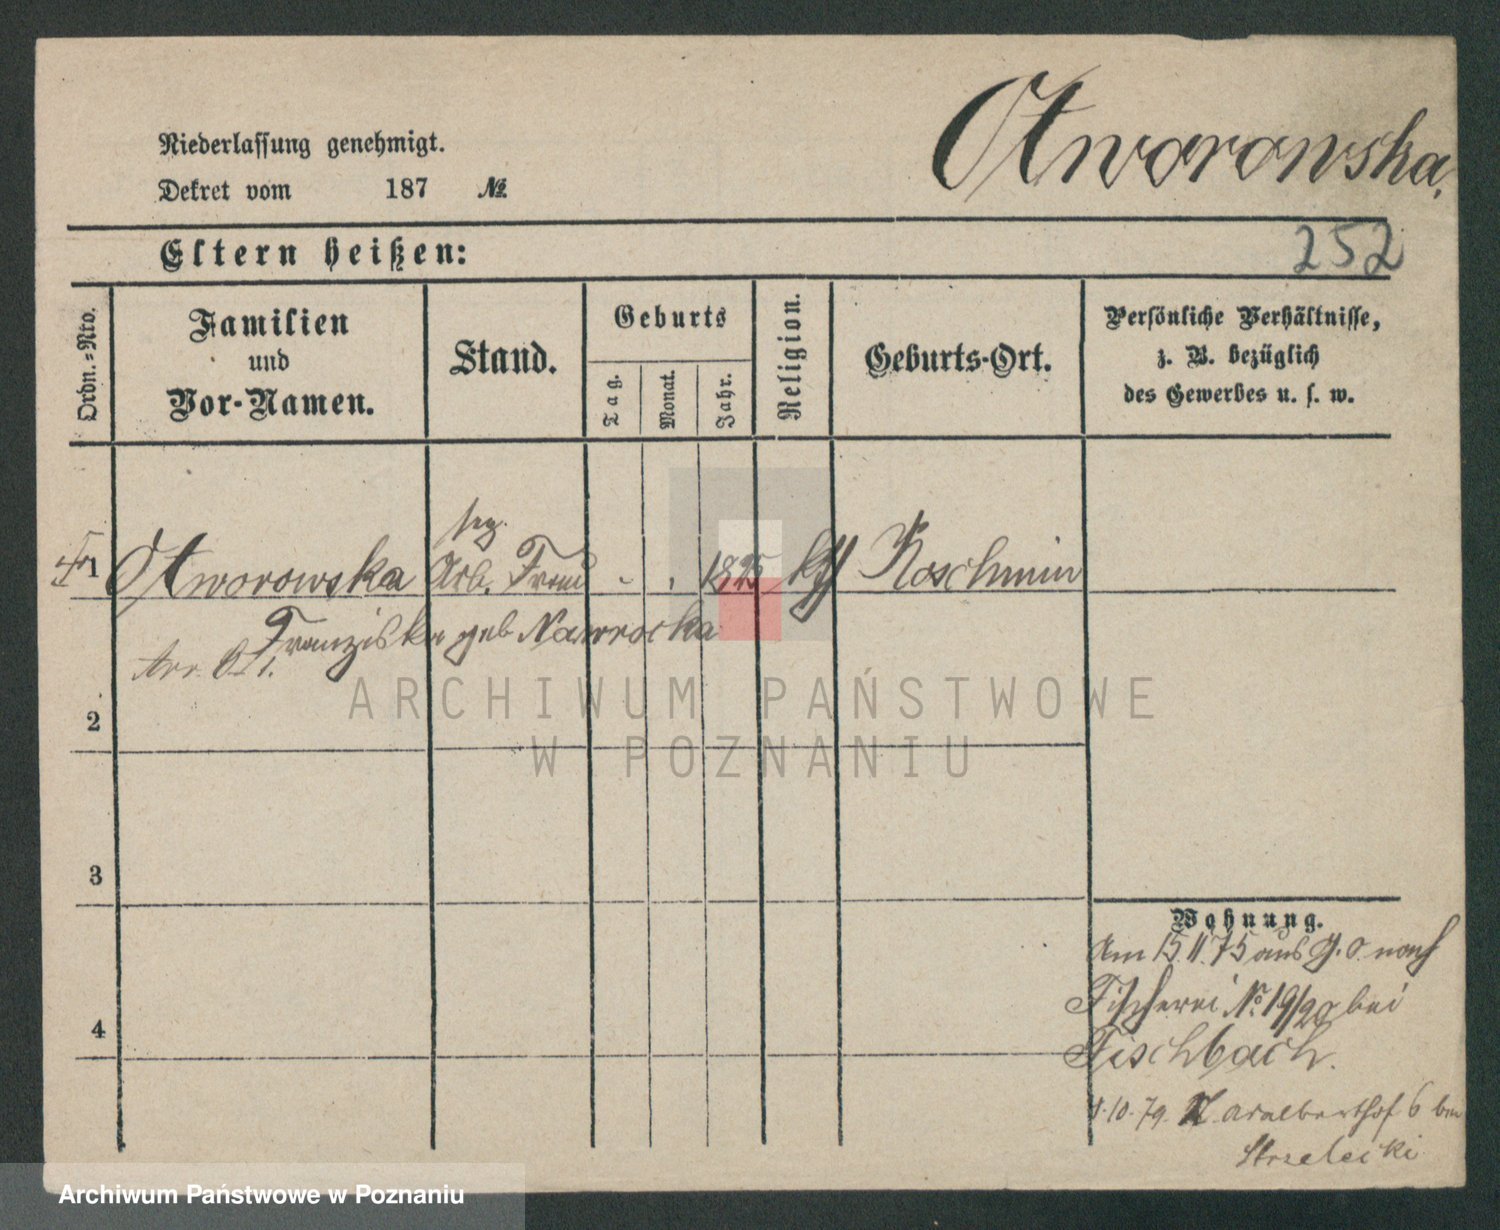 Otworowska.
Niederlassung genehmigt.
Dekret vom 187 №
Eltern heißen:
252
Ordn.=Nro.
Familien
und
Vor-Namen.
Stand.
Geburts
Tag.
Monat.
Jahr.
Religion.
Geburts-Ort.
Persönliche Verhältnisse,
z. B. bezüglich
des Gewerbes u. s. w.
1 Otworowska Arb. Frau 1825 kth Koschmin
Franziska geb Nawrocka
2
3
4
Wohnung.
Am 15.11.75 aus G. O. nach
Fischerei No 19/20 bei
Fischbach.
1.10.79. Adalberthof 6 bei
Strzelecki
ARCHIWUM PAŃSTWOWE
W POZNANIU
Archiwum Państwowe w Poznaniu